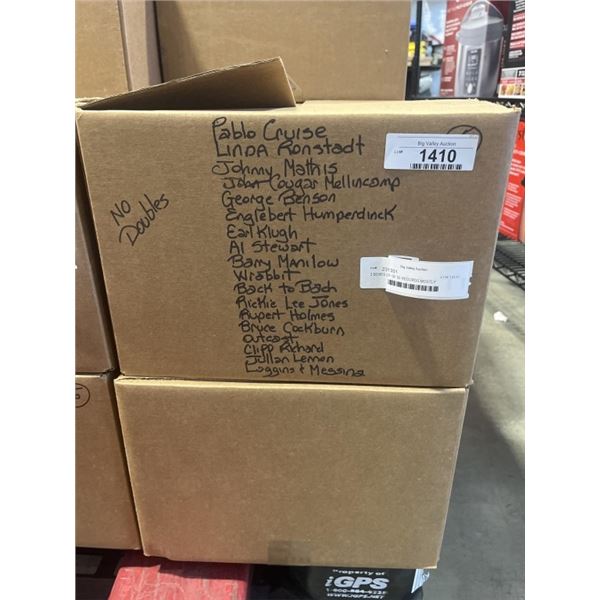 Pablo Cruise
LINDA Ronstadt
Johnny Mathis
John Cougar Mellincamp
George Benson
Englebert Humperdinck
Earl Klugh
Al Stewart
Barry Manilow
Wrabbit
Back to Bach
Rickie Lee Jones
Rupert Holmes
Bruce Cockburn
Outcast
Cliff Richard
Julian Lennon
Loggins + Messina
NO
Doubles
Big Valley Auction
Lot#
1410
Big Valley Auction
231351
Property of
GPS